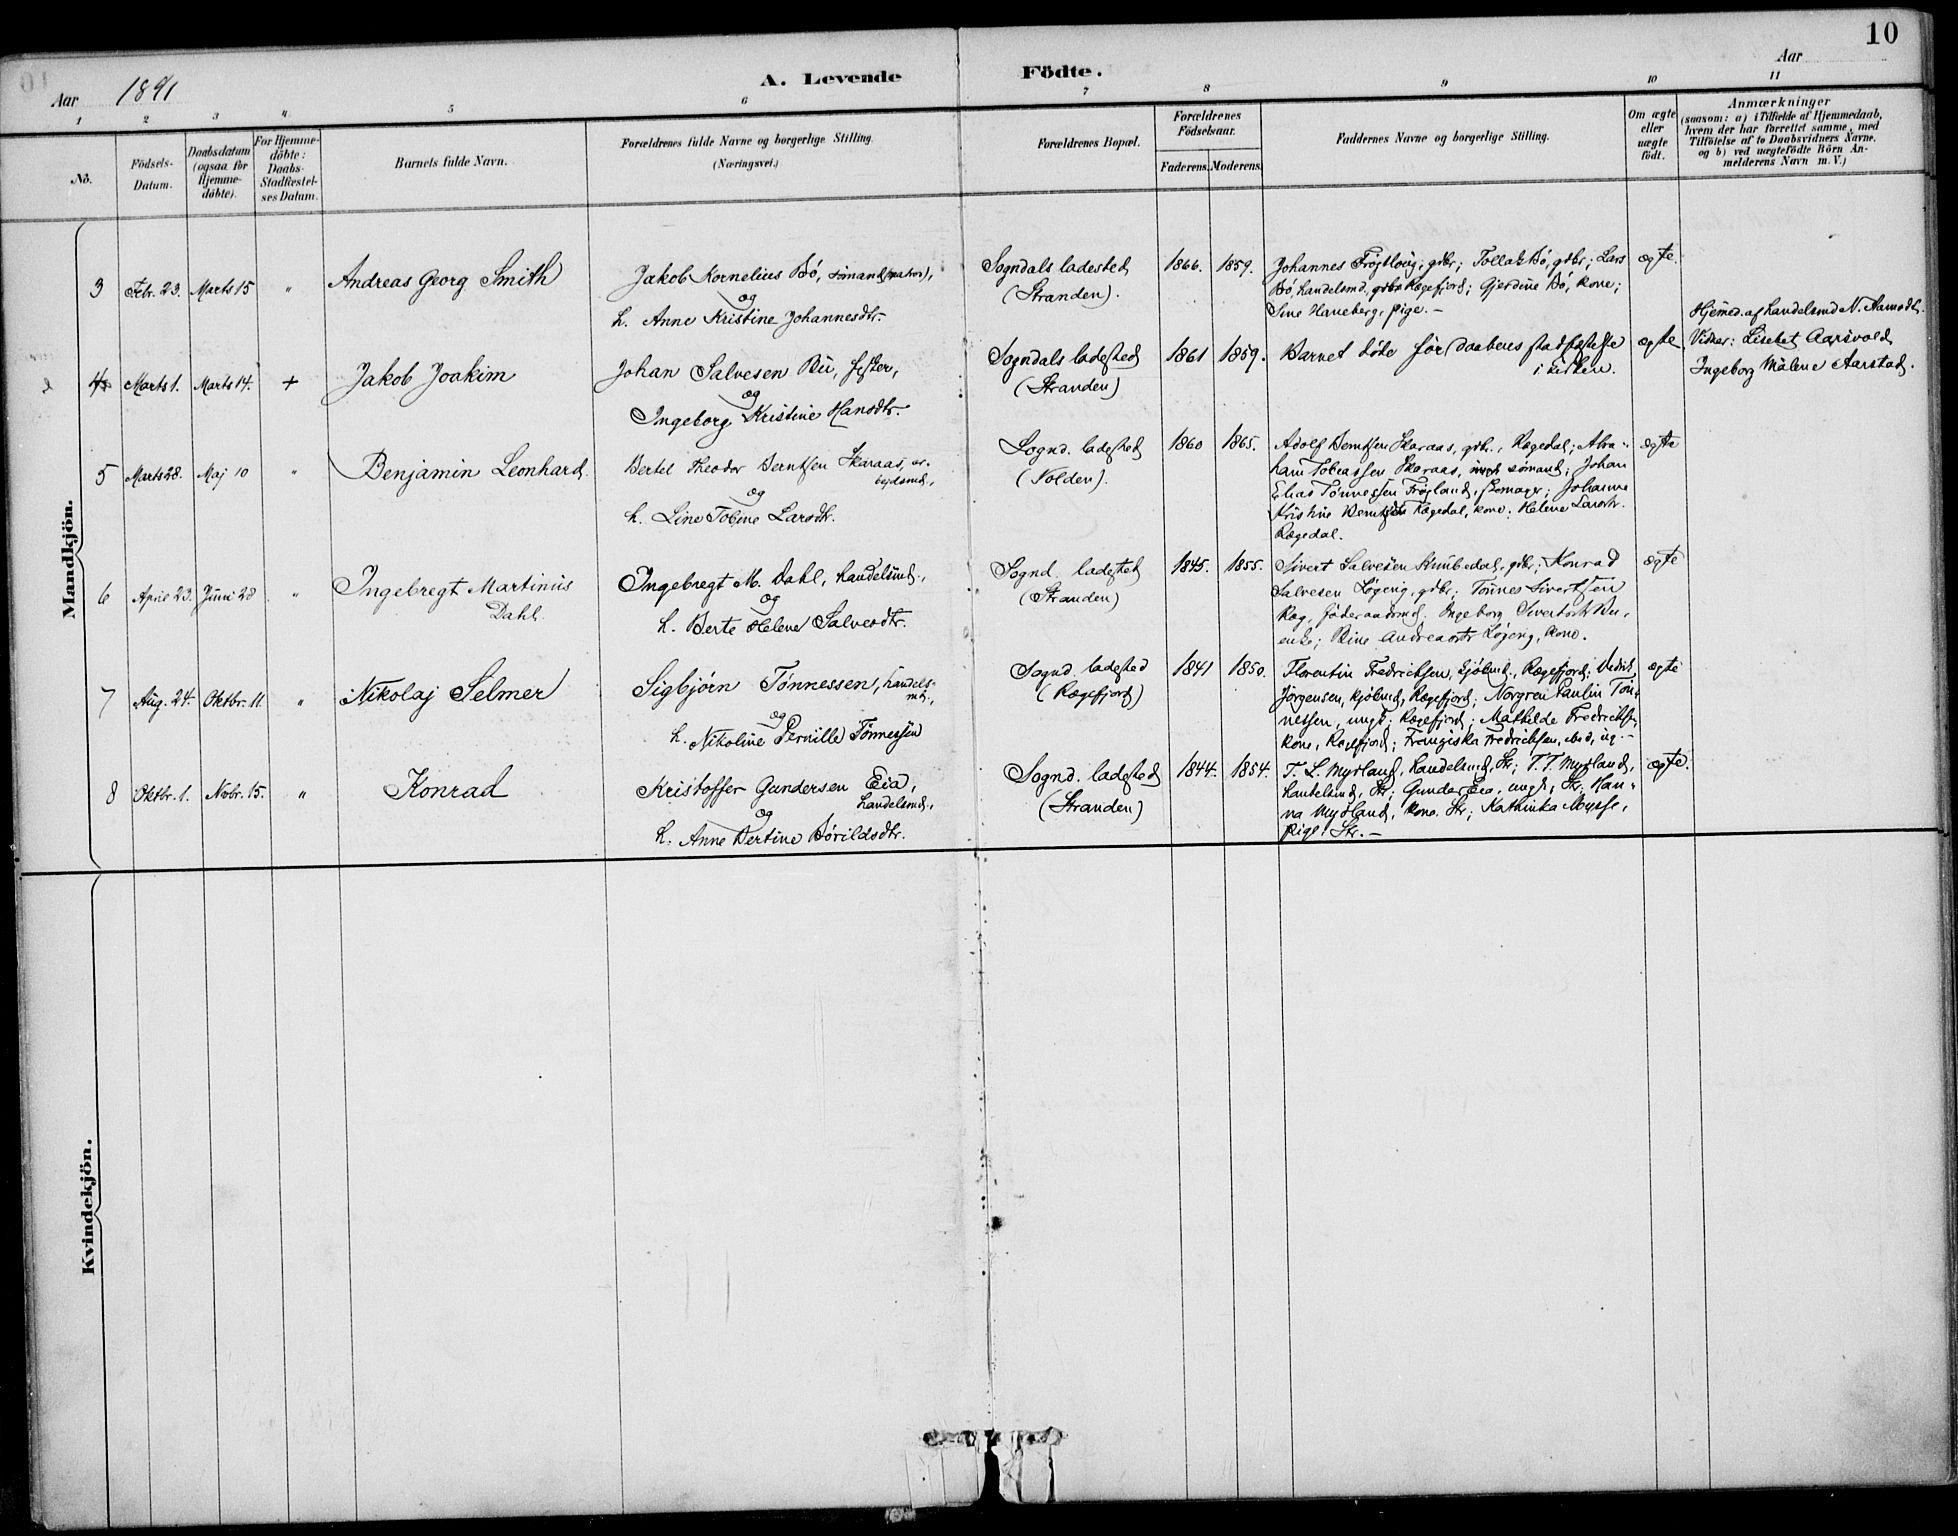 10
Aar 1891
A. Levende Födte.
Aar
1 2 3 4 5 6 7 8 9 10 11
No.
Födsels-Datum.
Daabsdatum (ogsaa for Hjemme-döbte).
For Hjemme-döbte: Daabs-Stadfæstel-ses Datum.
Barnets fulde Navn.
Forældrenes fulde Navne og borgerlige Stilling.
(Næringsvei.)
Forældrenes Bopæl.
Forældrenes Födselsaar.
Faderens. Moderens.
Faddernes Navne og borgerlige Stilling.
Om ægte eller uægte födt.
Anmærkninger
(saasom: a) i Tilfælde af Hjemmedaab,
hvem der har forrettet samme, med
Tilföielse af to Daabsvidners Navne.
og b) ved uægtefödte Börn An-
melderens Navn m. V.)
Mandkjön.
3 Febr. 23. Marts 15 " Andreas Georg Smith
Jakob Kornelius Bö, sömand (matros),
og
h. Anne Kristine Johannesdtr.
Sogndals ladested
(Stranden).
1866. 1859.
Johannes gdbr; Tollak Bö, gdbr; Lars
Bö, handelsmd, Rægefjord; Gjerdine Bö, kone;
Sine Haneberg, pige. –
ægte.
4 Marts 1. Marts 14. + Jakob Joakim
Johan Salvesen Bu, fisker,
og
Ingeborg Kristine Hansdtr.
Sogndals ladested
(Stranden)
1861 1859.
Barnet döde för daabens stadfæstelse
i kirken.
ægte
Hjemed. af handelsmd N. Aamodt.
Vidner: Lisebet Aarsvold
Ingeborg Målene Aarstad.
5 Marts 28. Maj 10 " Benjamin Leonhard
Bertel Theodor Berntsen Skaraas, ar-
bejdsmd,
og
h. Line Tobine Larsdtr.
Sognd. ladested
(Nolden).
1860 1865.
Adolf Berntsen Skaraas, gdbr., Rægedal; Abra-
ham Tobiassen Skaraas, sömand; Johan
Elias Tönnessen Fröjland, skomagr; Johanne
Kristine Rægedal, kone; Helene Larsdtr.
Rægedal.
ægte
6 April 23. Juni 28 " Ingebregt Martinius
Dahl.
Ingebregt M. Dahl, handelsmd.,
og
h. Berte Helene Salvesdtr.
Sognd. ladested
(Stranden)
1845. 1855.
Sivert Salvesen gdbr; Konrad
Salvesen Löging, gdbr; Tönnes Sivertsen
Ræg, Ingeborg
enke; Andreasdtr kone.
ægte
7 Aug. 24. Oktbr. 11. " Nikolaj Selmer
Sigbjörn Tönnessen, handels-
md.,
og
h. Nikoline Pernille Tönnessen
Sognd. ladested
(Rægefjord)
1841 1850.
Florentin Fredriksen, kjöbmd, Rægefjord;
Jörgensen, kjöbmd, Rægefjord; Norgren Paulin Tön-
nessen, ungk, Rægefjord; Mathilde Fredriksen
kone, Rægefjord; Franziska Fredriksen,
ægte
8 Oktbr. 1. Novbr. 15. " Konrad
Kristoffer Gundersen Eia,
handelsmd.,
og
h. Anne Bertine Börildsdtr.
Sognd. ladested
(Stranden)
1844. 1854.
T. L. Mydland, handelsmd, Str; T. T. Mydland,
handelsmd, Str; Gunder Eia, ungk, Str; Han-
na Mydland, kone, Str; Kathinka Mysse,
pige, Str. –
ægte.
Kvindekjön.